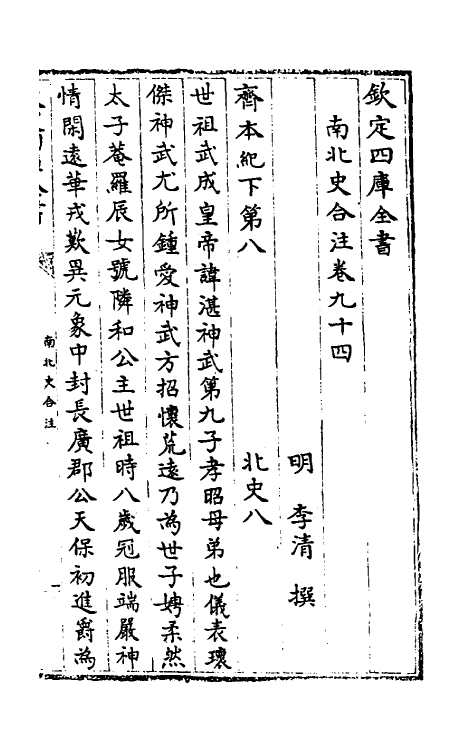 欽定四庫全書
南北史合注卷九十四
明 李清 撰
齊本紀下第八 北史八
世祖武成皇帝諱湛神武第九子孝昭母弟也儀表瓌
傑神武尤所鍾愛神武方招懷荒遠乃為世子娉柔然
太子菴羅辰女號隣和公主世祖時八歲冠服端嚴神
情閑遠華戎歎異元象中封長廣郡公天保初進爵為
南北史合注
一